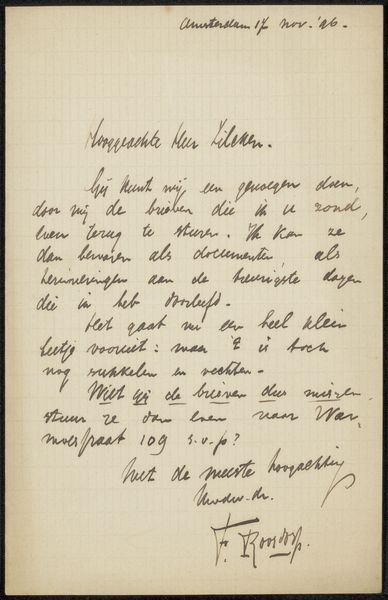 Amsterdam 17 Nov. '96.
Hooggeachte Heer Zilcken.
Gij kunt mij een genoegen doen,
door mij de brieven die ik u zond,
even terug te sturen. Ik kan ze
dan bewaren als documenten, als
herinneringen aan de treurigste dagen
die ik heb doorleefd.
Het gaat nu een heel klein
beetje vooruit: maar 't is toch
nog sukkelen en vechten.
Wilt gij de brieven dus missen
stuur ze dan even naar War-
moesstraat 109 s.v.p?
Met de meeste hoogachting
Uwdw. dr.
F. Roosdorp.